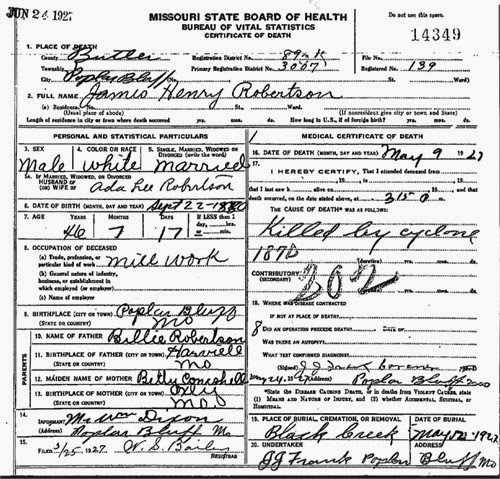 JUN 24 1927
MISSOURI STATE BOARD OF HEALTH
BUREAU OF VITAL STATISTICS
CERTIFICATE OF DEATH
Do not use this space.
14349
1. PLACE OF DEATH
County Butler Registration District No. 89 File No.
Township Primary Registration District No. 3007 Registered No. 139
City Poplar Bluff No. St. Ward)
2. FULL NAME James Henry Robertson
(a) Residence. No. St. Ward.
(Usual place of abode) (If nonresident give city or town and State)
Length of residence in city or town where death occurred yrs. mos. ds. How long in U.S., if of foreign birth? yrs. mos. ds.
PERSONAL AND STATISTICAL PARTICULARS
3. SEX 4. COLOR OR RACE 5. SINGLE, MARRIED, WIDOWED OR DIVORCED (write the word)
Male White Married
5a. IF MARRIED, WIDOWED, OR DIVORCED
HUSBAND OF
(OR) WIFE OF Ada Lee Robertson
6. DATE OF BIRTH (MONTH, DAY AND YEAR) Sept 22-1880
7. AGE YEARS MONTHS DAYS If LESS than 1
day, hrs.
or min.
46 7 17
8. OCCUPATION OF DECEASED
(a) Trade, profession, or
particular kind of work Mill Work
(b) General nature of industry,
business, or establishment in
which employed (or employer)
(c) Name of employer
9. BIRTHPLACE (CITY OR TOWN) Poplar Bluff
(STATE OR COUNTRY) Mo
PARENTS
10. NAME OF FATHER Billie Robertson
11. BIRTHPLACE OF FATHER (CITY OR TOWN) Harviell
(STATE OR COUNTRY) Mo
12. MAIDEN NAME OF MOTHER Betty
13. BIRTHPLACE OF MOTHER (CITY OR TOWN) Oxly
(STATE OR COUNTRY) Mo
14. INFORMANT Dixon
(Address) Poplar Bluff Mo
15. FILED 3/25 1927
REGISTRAR
MEDICAL CERTIFICATE OF DEATH
16. DATE OF DEATH (MONTH, DAY AND YEAR) May 9 1927
17.
I HEREBY CERTIFY, That I attended deceased from
, 19 , to , 19
that I last saw h alive on , 19 , and that
death occurred, on the date stated above, at 315 P m.
THE CAUSE OF DEATH* WAS AS FOLLOWS:
Killed by cyclone
1870
202
CONTRIBUTORY
(SECONDARY)
18. WHERE WAS DISEASE CONTRACTED
IF NOT AT PLACE OF DEATH?
8 DID AN OPERATION PRECEDE DEATH? DATE OF
WAS THERE AN AUTOPSY?
WHAT TEST CONFIRMED DIAGNOSIS?
(Signed) J J Frank Coroner
24, 1927 Poplar Bluff Mo
*State the Disease Causing Death, or in deaths from Violent Causes, state
(1) Means and Nature of Injury, and (2) whether Accidental, Suicidal, or
Homicidal.
19. PLACE OF BURIAL, CREMATION, OR REMOVAL DATE OF BURIAL
Black Creek May 12 1927
20. UNDERTAKER ADDRESS
JJ Frank Poplar Bluff Mo